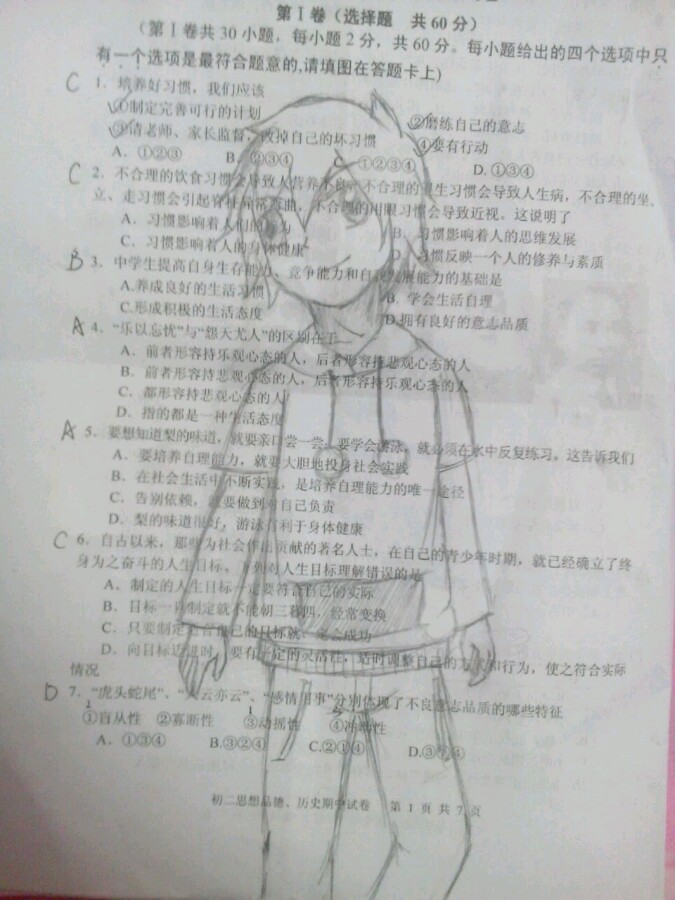 第Ⅰ卷（选择题 共60分）
（第Ⅰ卷共30小题，每小题2分，共60分。每小题给出的四个选项中只
有一个选项是最符合题意的,请填图在答题卡上)
C 1．培养好习惯，我们应该
①制定完善可行的计划 ②磨练自己的意志
③请老师、家长监督，改掉自己的坏习惯 ④要有行动
A．①②③ B．②③④ C．①②③④ D.①③④
C 2．不合理的饮食习惯会导致人营养不良，不合理的卫生习惯会导致人生病，不合理的坐、
立、走习惯会引起脊柱异常弯曲，不合理的用眼习惯会导致近视。这说明了
A．习惯影响着人们的行为 B．习惯影响着人的思维发展
C．习惯影响着人的身体健康 D．习惯反映一个人的修养与素质
B 3．中学生提高自身生存能力、竞争能力和自我发展能力的基础是
A.养成良好的生活习惯 B．学会生活自理
C.形成积极的生活态度 D.拥有良好的意志品质
A 4．“乐以忘忧”与“怨天尤人”的区别在于
A．前者形容持乐观心态的人，后者形容持悲观心态的人
B．前者形容持悲观心态的人，后者形容持乐观心态的人
C．都形容持悲观心态的人
D．指的都是一种生活态度
A 5．要想知道梨的味道，就要亲口尝一尝；要学会游泳，就必须在水中反复练习。这告诉我们
A．要培养自理能力，就要大胆地投身社会实践
B．在社会生活中不断实践，是培养自理能力的唯一途径
C．告别依赖，就要做到对自己负责
D．梨的味道很好，游泳有利于身体健康
C 6．自古以来，那些为社会作出贡献的著名人士，在自己的青少年时期，就已经确立了终
身为之奋斗的人生目标。下列对人生目标理解错误的是
A．制定的人生目标一定要符合自己的实际
B．目标一旦制定就不能朝三暮四，经常变换
C．只要制定适合自己的目标就一定会成功
D．向目标迈进时，要有一定的灵活性，适时调整自己的方式和行为，使之符合实际
情况
D 7．“虎头蛇尾”、“人云亦云”、“感情用事”分别体现了不良意志品质的哪些特征
①盲从性 ②寡断性 ③动摇性 ④冲动性
A．①③④ B.③②④ C.②①④ D.③①④
初二思想品德、历史期中试卷 第 1 页 共 7 页